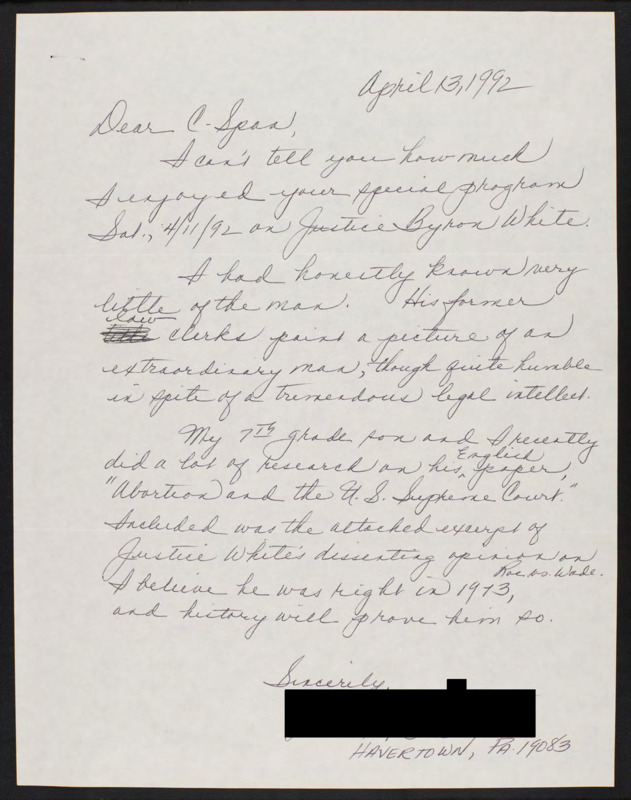 April 13, 1992
Dear C-Span,
I can't tell you how much
I enjoyed your special program
Sat., 4/11/92 on Justice Byron White.
I had honestly known very
little of the man. His former
law
clerks paint a picture of an
extraordinary man, though quite humble
in spite of a tremendous legal intellect.
My 7th grade son and I recently
English
did a lot of research on his ^ paper,
"Abortion and the U.S. Supreme Court."
Included was the attached excerpt of
Justice White's dissenting opinion on
Roe vs. Wade.
I believe he was right in 1973,
and history will prove him so.
Sincerely,
HAVERTOWN, PA. 19083